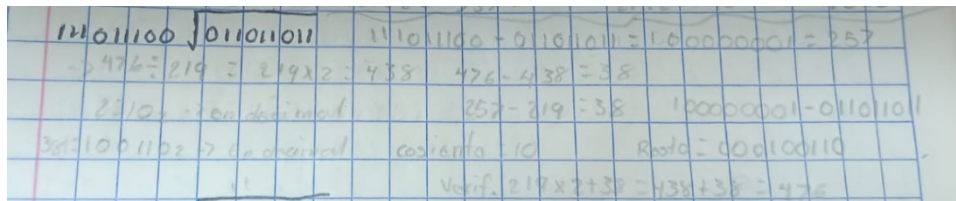 111011100 √011011011 111011100 - 011011011 = 100000001 = 257
→ 476 ÷ 219 = 219x2 = 438 476 - 438 = 38
2 = 10₂ → en decimal 257 - 219 = 38 100000001 - 011011011
38 = 100110₂ → decimal cociente = 10 Resto = 000100110
Verif. 219 x 2 + 38 = 438 + 38 = 476